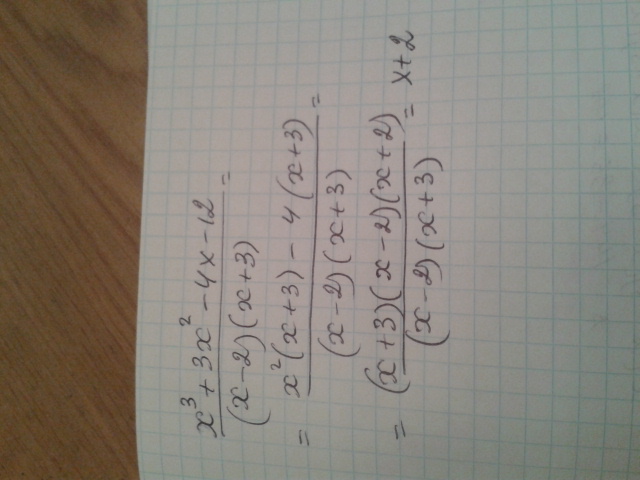 x³+3x²-4x-12
(x-2)(x+3) =
= x²(x+3)-4(x+3)
(x-2)(x+3) =
= (x+3)(x-2)(x+2)
(x-2)(x+3) = x+2